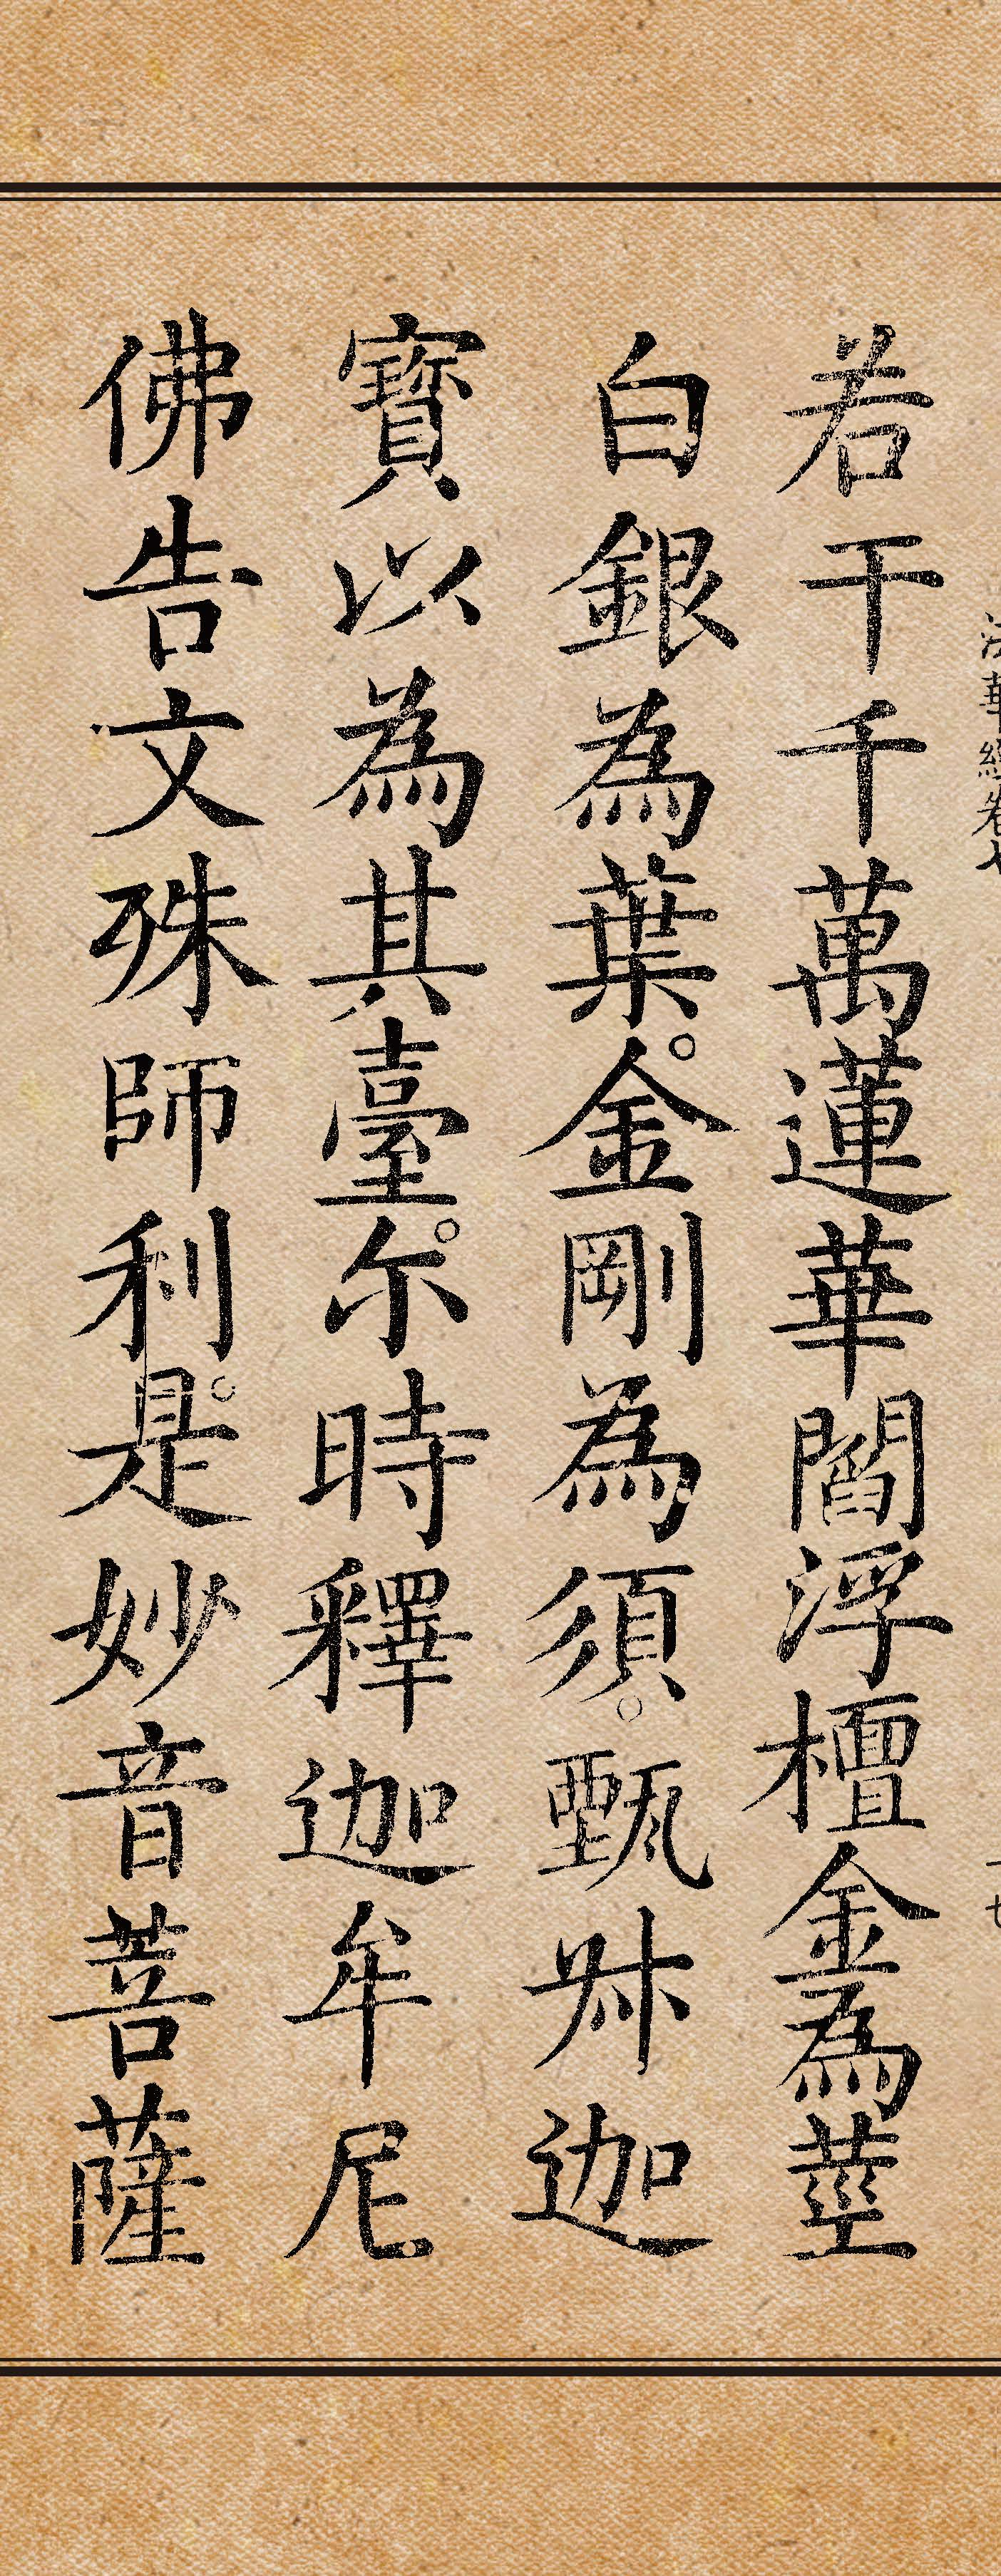 若干千萬蓮華閻浮檀金為莖
白銀為葉。金剛為須。甄叔迦
寶以為其臺。尒時釋迦牟尼
佛告文殊師利。是妙音菩薩